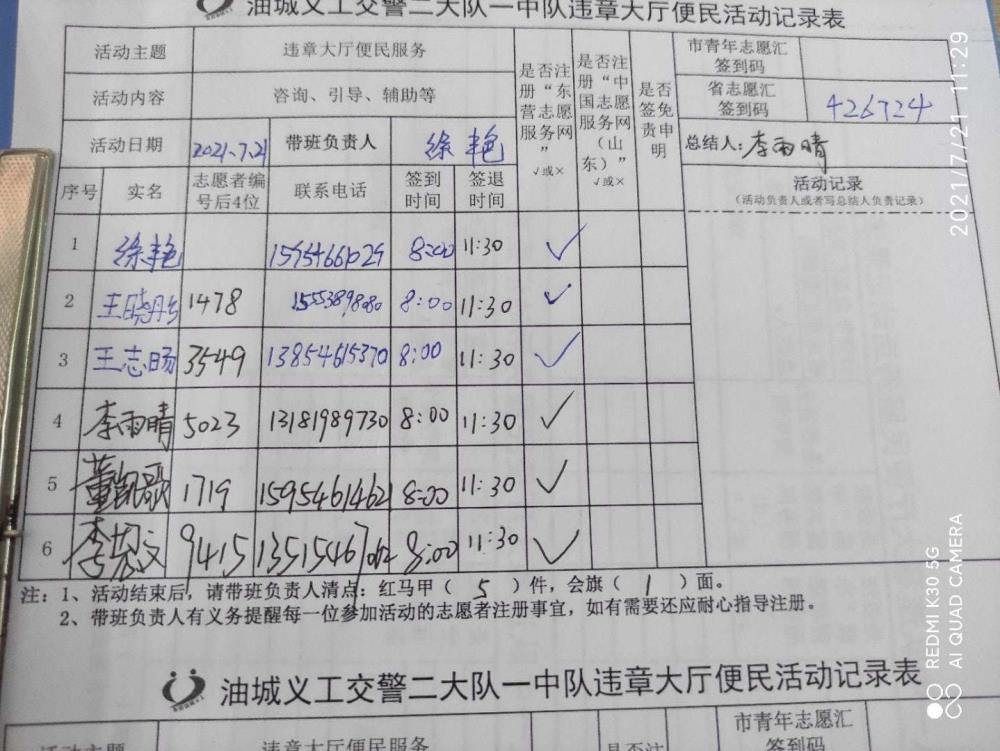 油城义工交警二大队一中队违章大厅便民活动记录表
活动主题 违章大厅便民服务 是否注册“东营志愿服务网” √或× 是否注册“中国志愿服务网（山东）” √或× 是否签免责申明 市青年志愿汇签到码
活动内容 咨询、引导、辅助等 省志愿汇签到码 426724
活动日期 2021.7.21 带班负责人 徐艳 总结人：李雨晴
序号 实名 志愿者编号后4位 联系电话 签到时间 签退时间 活动记录
（活动负责人或者写总结人负责记录）
1 徐艳 8:00 11:30 √
2 王晓彤 1478 15553898080 8:00 11:30 √
3 王志旸 3549 13854615370 8:00 11:30 √
4 李雨晴 5023 13181989730 8:00 11:30 √
5 董凯歌 1719 15954614621 8:00 11:30 √
6 9415 8:00 11:30 √
注：1、活动结束后，请带班负责人清点：红马甲（ 5 ）件，会旗（ 1 ）面。
2、带班负责人有义务提醒每一位参加活动的志愿者注册事宜，如有需要还应耐心指导注册。
油城义工交警二大队一中队违章大厅便民活动记录表
活动主题 违章大厅便民服务 是否注 市青年志愿汇
签到码
2021/7/21 11:29
REDMI K30 5G
AI QUAD CAMERA